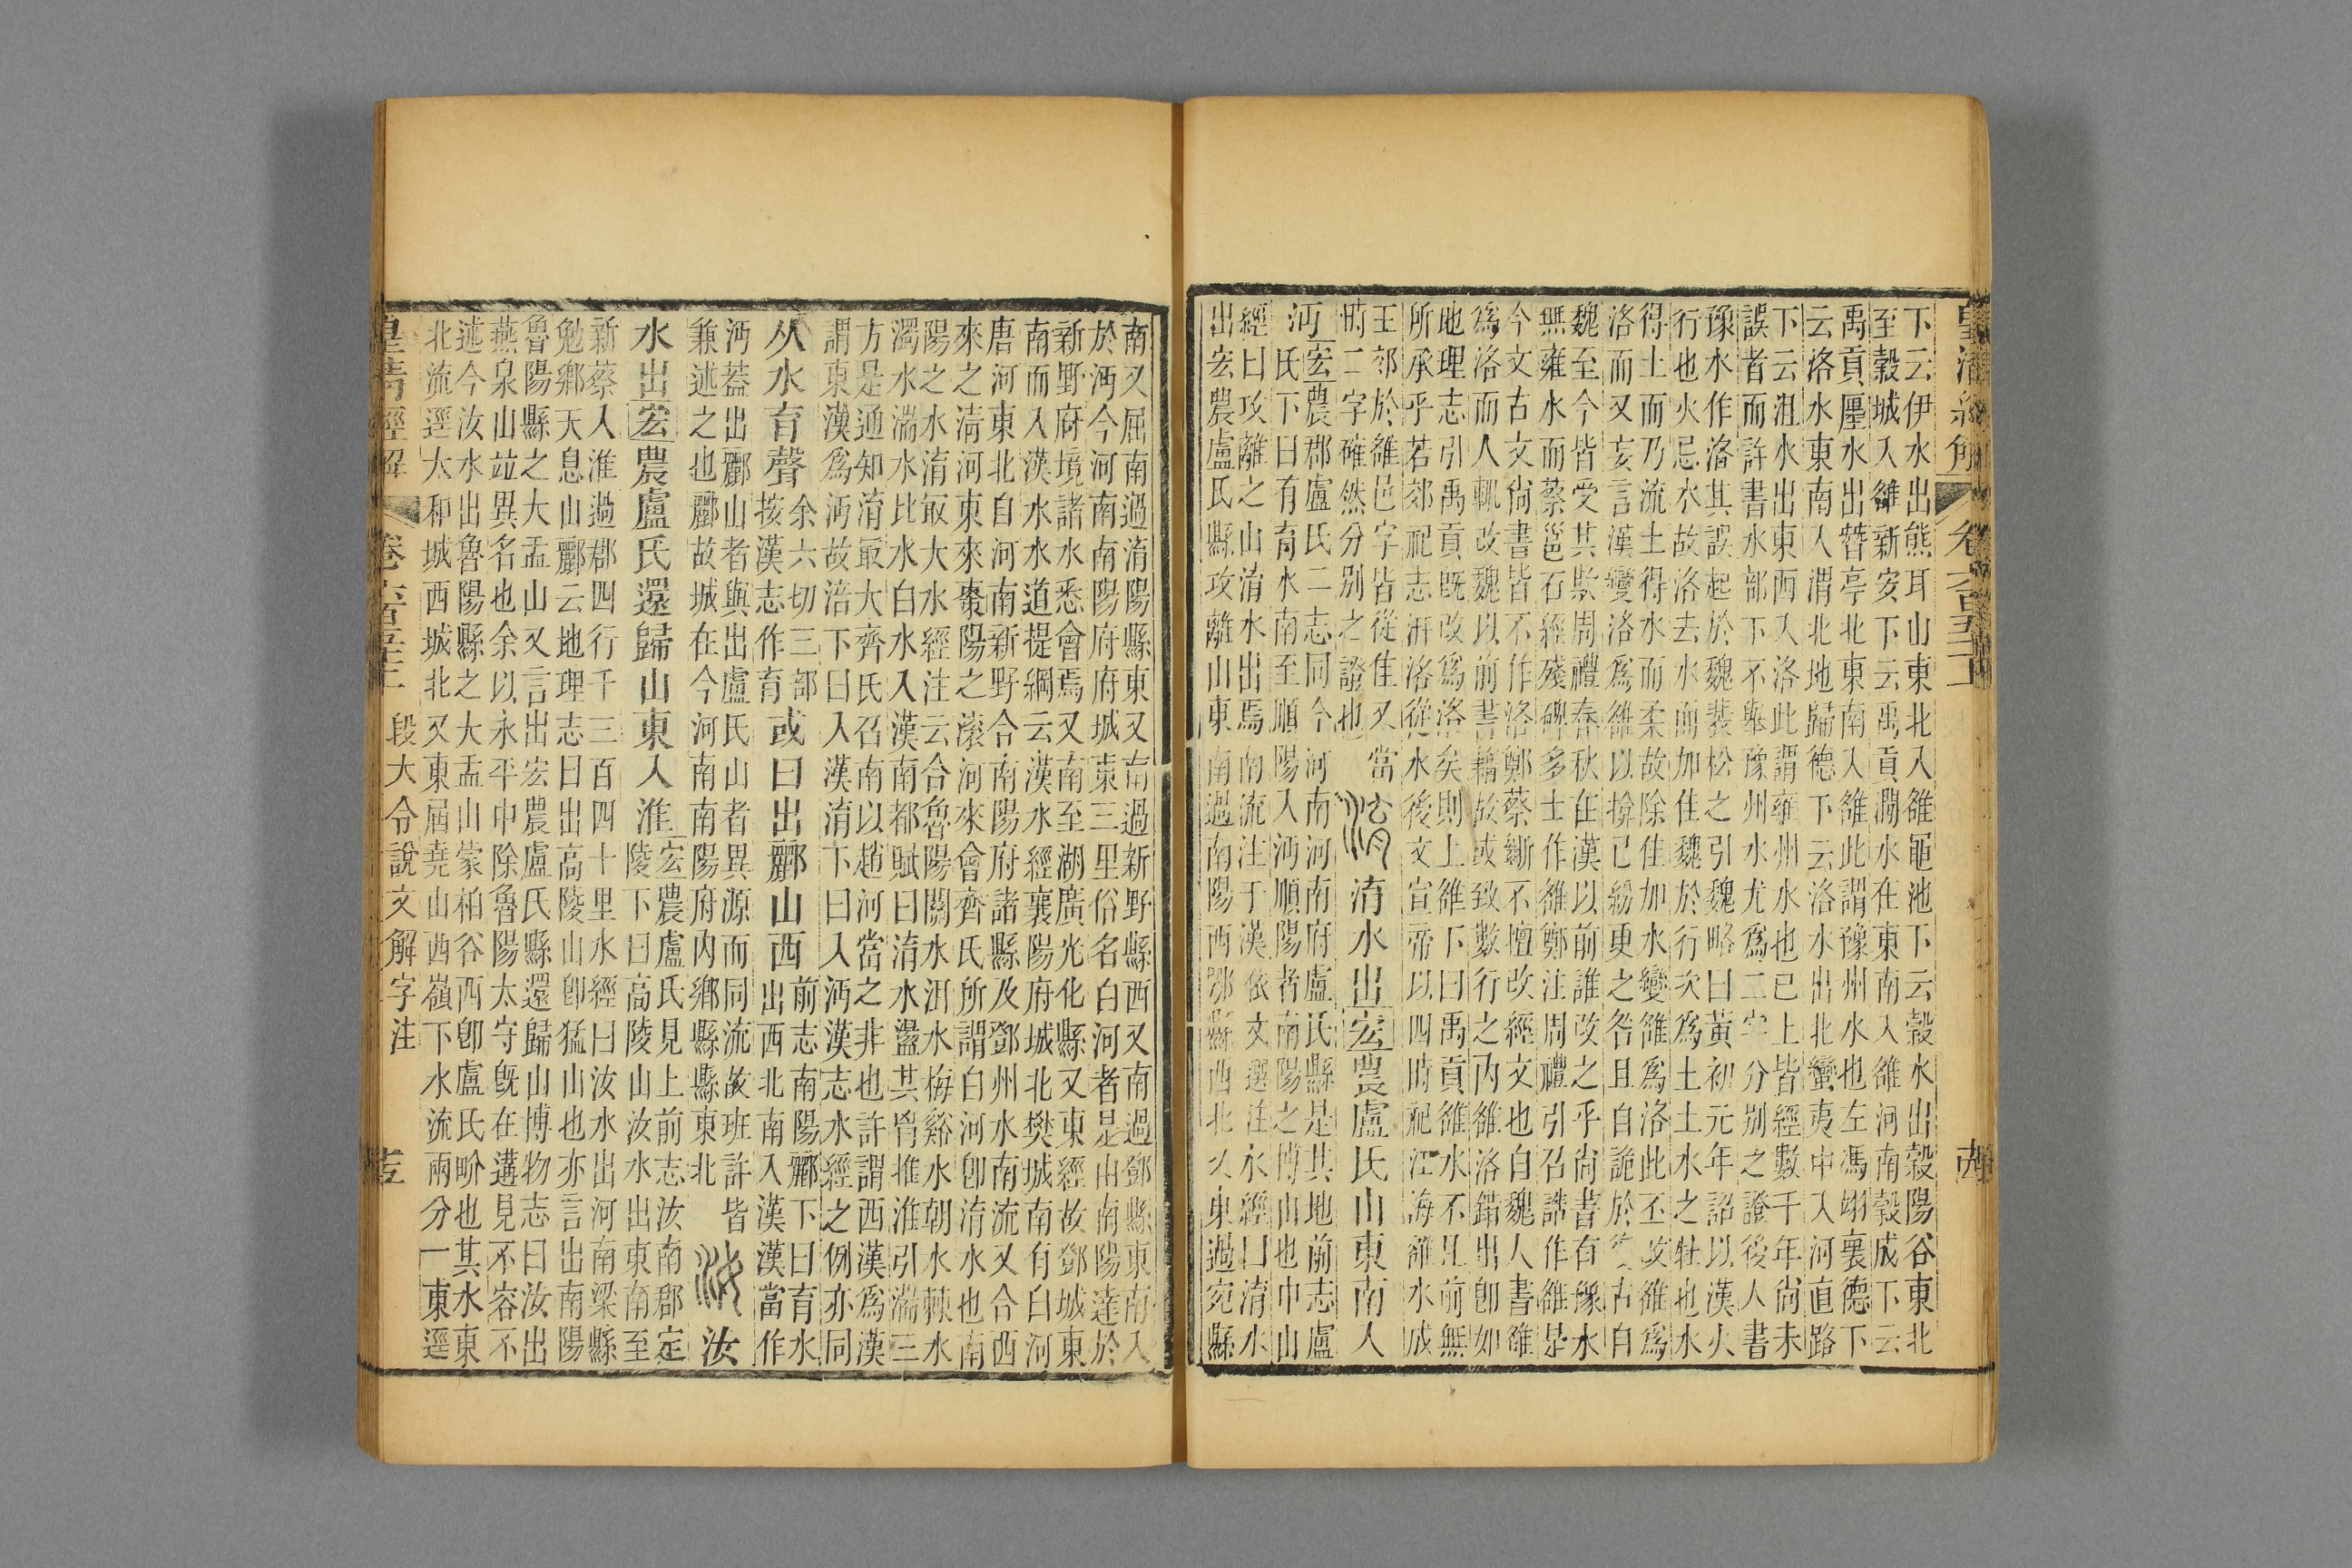 皇清經解 卷六百五十一 十四
下云伊水出熊耳山東北入雒黽池下云穀水出穀陽谷東北
至穀城入雒新安下云禹貢澗水在東南入雒河南穀成下云
禹貢廛水出暜亭北東南入雒此謂豫州水也左馮翊襄德下
云洛水東南入渭北地歸德下云洛水出北蠻夷中入河直路
下云沮水出東西入洛此謂雍州水也已上皆經數千年尚未
誤者而許書水部下不舉豫州水尤爲二字分別之證後人書
豫水作洛其誤起於魏裴松之引魏略曰黃初元年詔以漢火
行也火忌水故洛去水而加隹魏於行次爲土土水之牡也水
得土而乃流土得水而柔故除隹加水變雒爲洛此丕改雒爲
洛而又妄言漢變洛爲雒以揜已紛更之咎且自詭於 古自
魏至今皆受其欺周禮春秋在漢以前誰改之乎尙書有豫水
無雍水而蔡邕石經殘碑多士作雒鄭注周禮引召誥作雒是
今文古文尙書皆不作洛鄭蔡斷不擅改經文也自魏人書雒
爲洛而人輒改魏以前書籍故或致數行之內雒洛錯出卽如
地理志引禹貢旣改爲洛矣則上雒下曰禹貢雒水不且前無
所承乎若郊祀志汧洛從水後文宣帝以四時祀江海雒水成
王郟於雒邑字皆從隹又當
時二字確然分別之證也
淯 淯水出宏農盧氏山東南入
沔
宏農郡盧氏二志同今河南河南府盧氏縣是其地前志盧
氏下曰有育水南至順陽入沔順陽者南陽之博山也中山
經曰攻離之山淯水出焉南流注于漢依文選注水經曰淯水
出宏農盧氏縣攻離山東南過南陽西鄂縣西北又東過宛縣
南又屈南過淯陽縣東又南過新野縣西又南過鄧縣東南入
於沔今河南南陽府府城東三里俗名白河者是由南陽達於
新野府境諸水悉會焉又南至湖廣光化縣又東經故鄧城東
南而入漢水水道提綱云漢水經襄陽府城北樊城南有白河
唐河東北自河南新野合南陽府諸縣及鄧州水南流又合西
來之淸河東來棗陽之滾河來會齊氏所謂白河卽淯水也南
陽之水淯㝡大水經注云合魯陽關水洱水梅谿水朝水棘水
濁水湍水比水白水入漢南都賦曰淯水盪其胷推淮引湍三
方是通知淯㝡大齊氏召南以趙河當之非也許謂西漢爲漢
謂東漢爲沔故涪下曰入漢淯下曰入沔漢志水經之例亦同
从水育聲
余六切三部
按漢志作育
或曰出酈山西
前志南陽酈下曰育水
出西北南入漢漢當作
沔葢出酈山者與出盧氏山者異源而同流故班許皆
兼述之也酈故城在今河南南陽府內鄉縣縣東北
汝 汝
水出宏農盧氏還歸山東入淮
宏農盧氏見上前志汝南郡定
陵下曰高陵山汝水出東南至
新蔡入淮過郡四行千三百四十里水經曰汝水出河南梁縣
勉鄉天息山酈云地理志曰出高陵山卽猛山也亦言出南陽
魯陽縣之大盂山又言出宏農盧氏縣還歸山博物志曰汝出
燕泉山竝異名也余以永平中除魯陽太守旣在遘見不容不
述今汝水出魯陽縣之大盂山蒙柏谷西卽盧氏畍也其水東
北流逕太和城西城北又東屆堯山西嶺下水流兩分一東逕
皇清經解 卷六百五十一 段大令說文解字注 十五